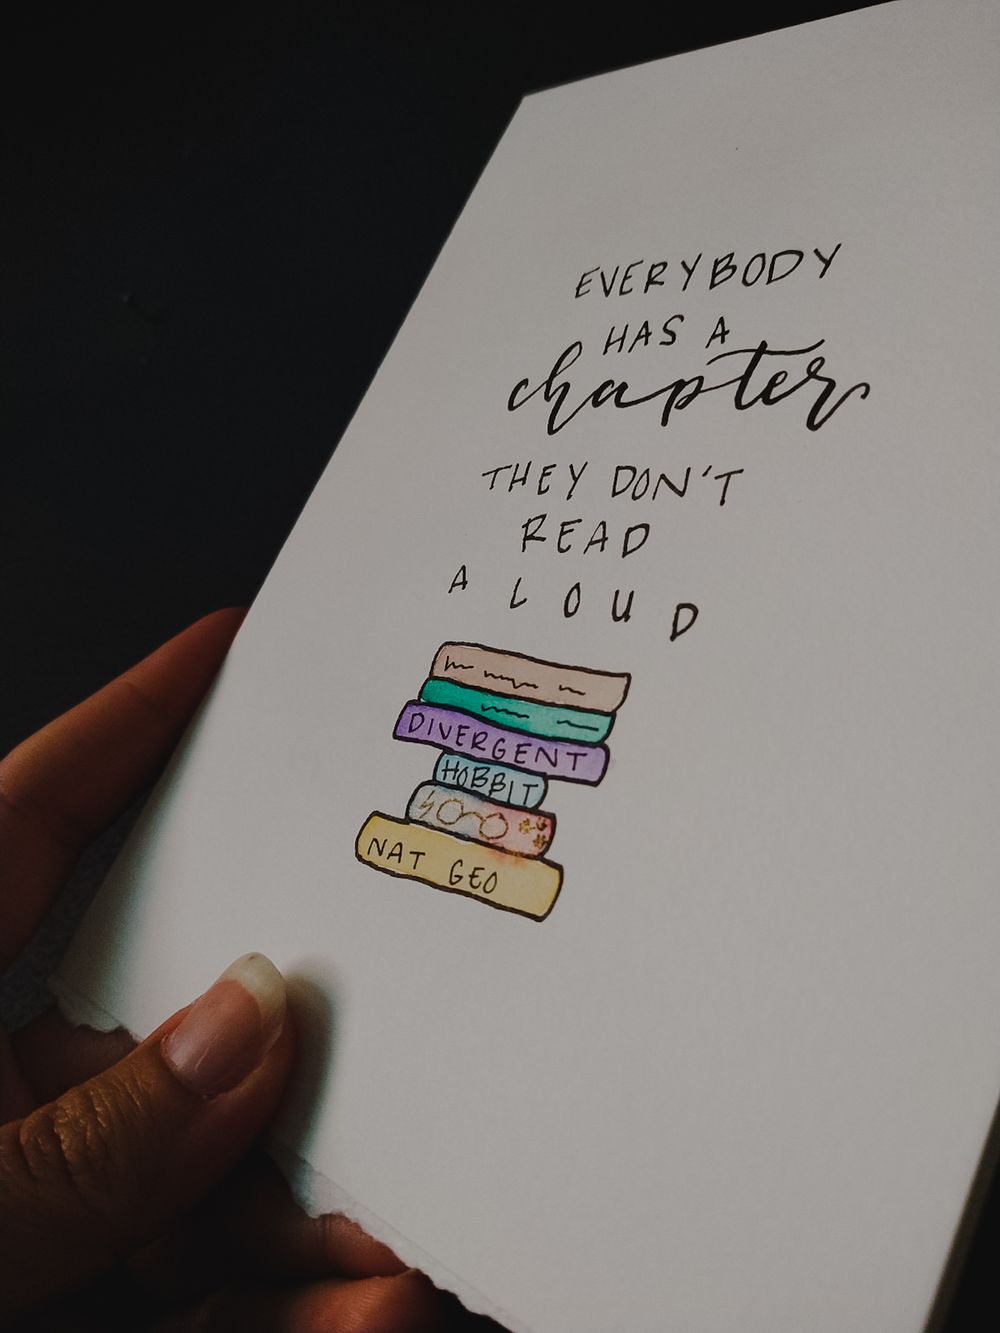 EVERYBODY
HAS A
chapter
THEY DON'T
READ
ALOUD
DIVERGENT
HOBBIT
NAT GEO